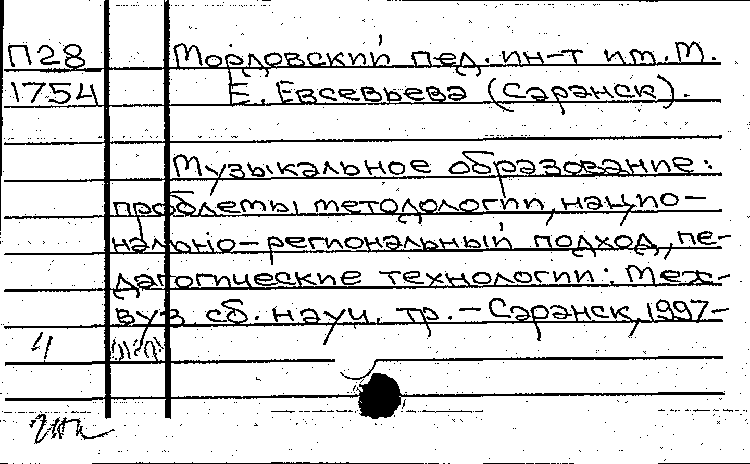 П28 Мордовский пед. ин-т им. М.
1754 Е. Евсевьева (Саранск).
Музыкальное образование:
проблемы методологии, нацио-
нально-региональный подход, пе-
дагогические технологии: Меж-
вуз. сб. науч. тр. - Саранск, 1997-
Ч